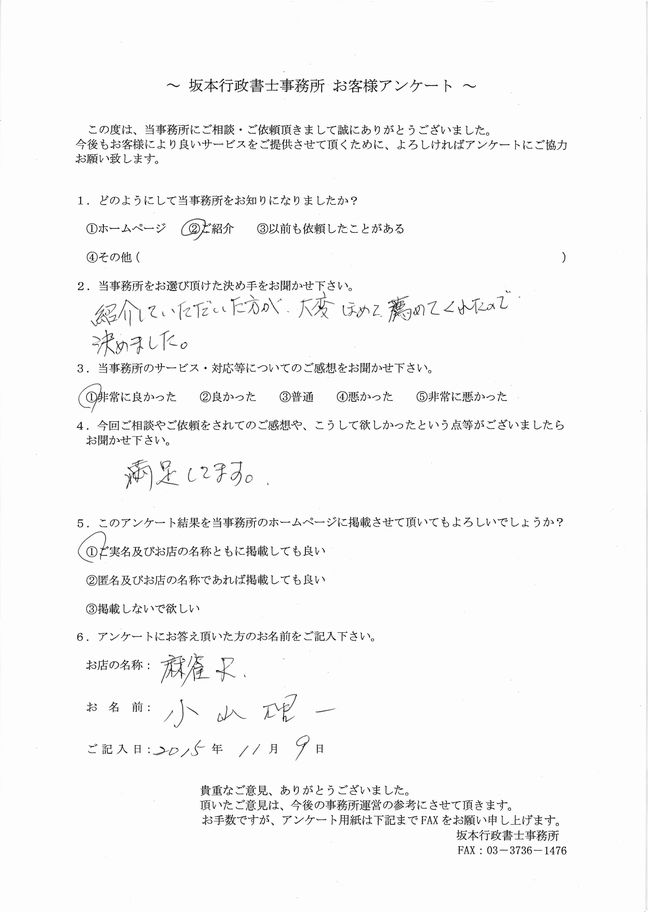 ～ 坂本行政書士事務所 お客様アンケート ～
この度は、当事務所にご相談・ご依頼頂きまして誠にありがとうございました。
今後もお客様により良いサービスをご提供させて頂くために、よろしければアンケートにご協力
お願い致します。
１．どのようにして当事務所をお知りになりましたか？
①ホームページ ②ご紹介 ③以前も依頼したことがある
④その他（ ）
２．当事務所をお選び頂けた決め手をお聞かせ下さい。
紹介していただいた方が、大変ほめて薦めてくれたので
決めました。
３．当事務所のサービス・対応等についてのご感想をお聞かせ下さい。
①非常に良かった ②良かった ③普通 ④悪かった ⑤非常に悪かった
４．今回ご相談やご依頼をされてのご感想や、こうして欲しかったという点等がございましたら
お聞かせ下さい。
満足してます。
５．このアンケート結果を当事務所のホームページに掲載させて頂いてもよろしいでしょうか？
①ご実名及びお店の名称ともに掲載しても良い
②匿名及びお店の名称であれば掲載しても良い
③掲載しないで欲しい
６．アンケートにお答え頂いた方のお名前をご記入下さい。
お店の名称： 麻雀
お 名 前： 小山 一
ご記入日：2015 年 11 月 9 日
貴重なご意見、ありがとうございました。
頂いたご意見は、今後の事務所運営の参考にさせて頂きます。
お手数ですが、アンケート用紙は下記まで FAX をお願い申し上げます。
坂本行政書士事務所
FAX：03－3736－1476